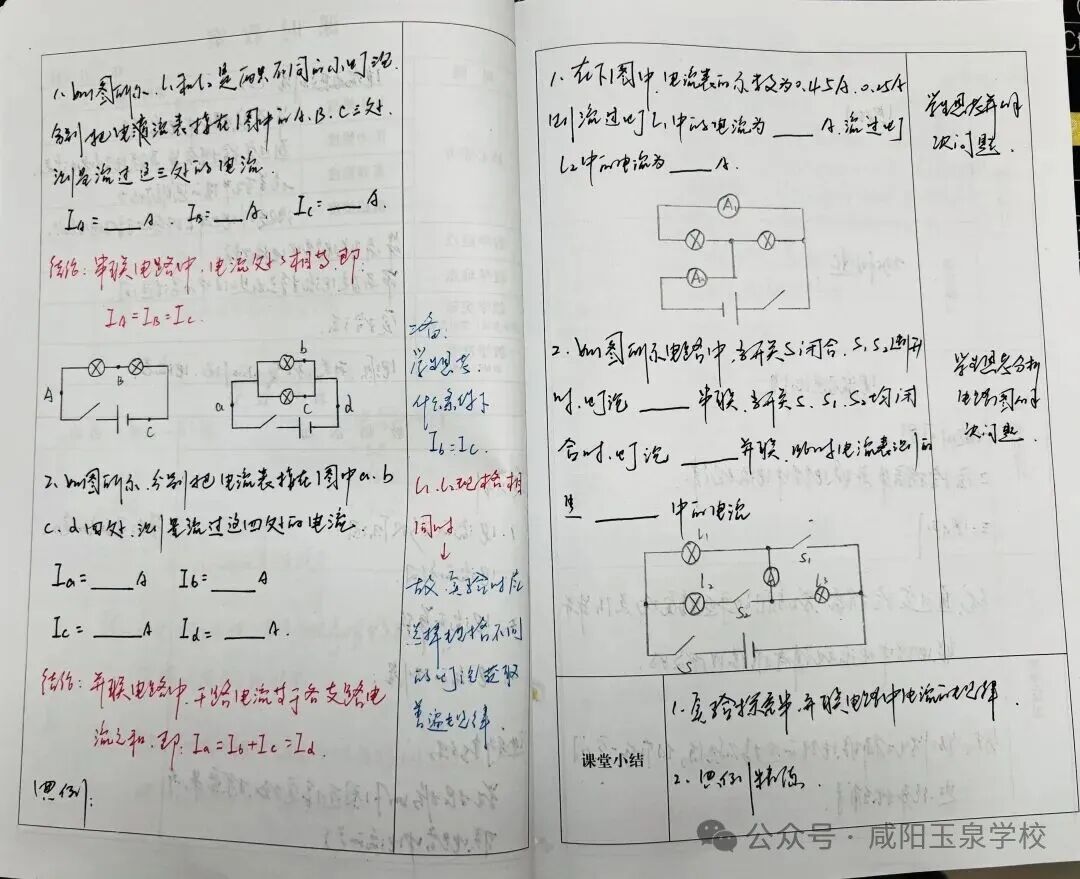 1、如图所示，L₁和L₂是两只不同的小灯泡.
分别把电流表接在图中的A、B、C三处.
测量流过这三处的电流.
I_A=____A. I_B=____A. I_C=____A.
结论：串联电路中，电流处处相等，即：
I_A=I_B=I_C.
A
B
C
a
b
c
d
2、如图所示，分别把电流表接在图中a、b
c、d四处，测量流过这四处的电流.
Ia=____A Ib=____A
Ic=____A Id=____A.
结论：并联电路中，干路电流等于各支路电
流之和. 即：Ia=Ib+Ic=Id
典例：
学生思考.
什么条件下
Ib=Ic.
L₁、L₂规格相
同时
↓
故，实验时应
选择规格不同
的灯泡
普遍规律.
1、在下图中，电流表的示数为0.45A、0.25A
则流过灯L₁中的电流为____A. 流过灯
L₂中的电流为____A.
A₁
A₂
学生思考并解
决问题.
2、如图所示电路中，当开关S闭合，S₁、S₂断开
时，灯泡____串联，当开关S、S₁、S₂均闭
合时，灯泡____并联，此时电流表测的
是____中的电流
学生思考分析
电路图解
决问题.
L₁
S₁
A
L₂
S₂
L₃
S
课堂小结
1、实验探究串、并联电路中电流的规律.
2、典例精练.
公众号 · 咸阳玉泉学校